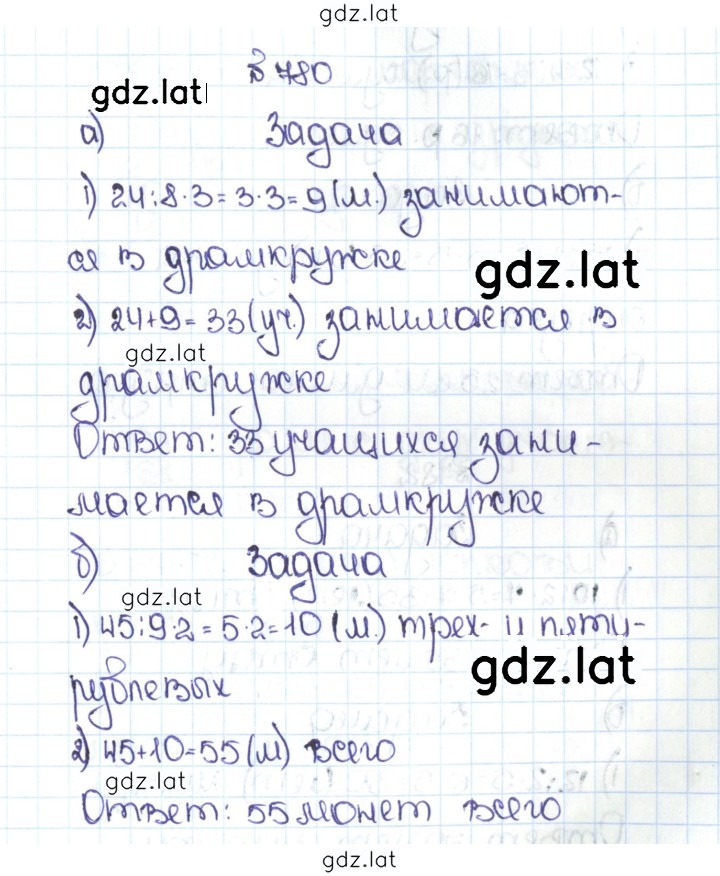 gdz.lat
№ 780
gdz.lat
а) Задача
1) 24:8·3=3·3=9(м.) занимают-
ся в драмкружке
gdz.lat
2) 24+9=33(уч.) занимается в
gdz.lat
драмкружке
Ответ: 33 учащихся зани-
мается в драмкружке
б) Задача
gdz.lat
1) 45:9·2=5·2=10(м.) трех- и пяти-
gdz.lat
рублевых
2) 45+10=55(м) всего
gdz.lat
Ответ: 55 монет всего
gdz.lat